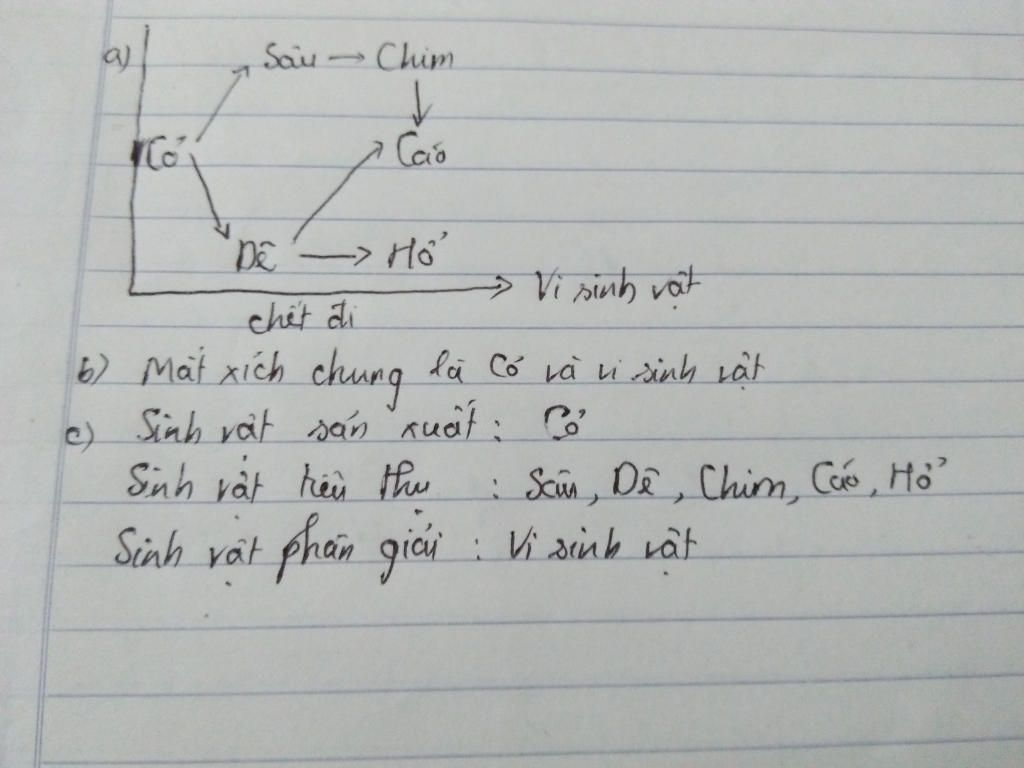 a) Sâu → Chim
Cỏ Cáo
Dê → Hổ
Vi sinh vật
chết đi
b) Mắt xích chung là Cỏ và vi sinh vật
c) Sinh vật sản xuất : Cỏ
Sinh vật tiêu thụ : Sâu, Dê, Chim, Cáo, Hổ
Sinh vật phân giải : Vi sinh vật